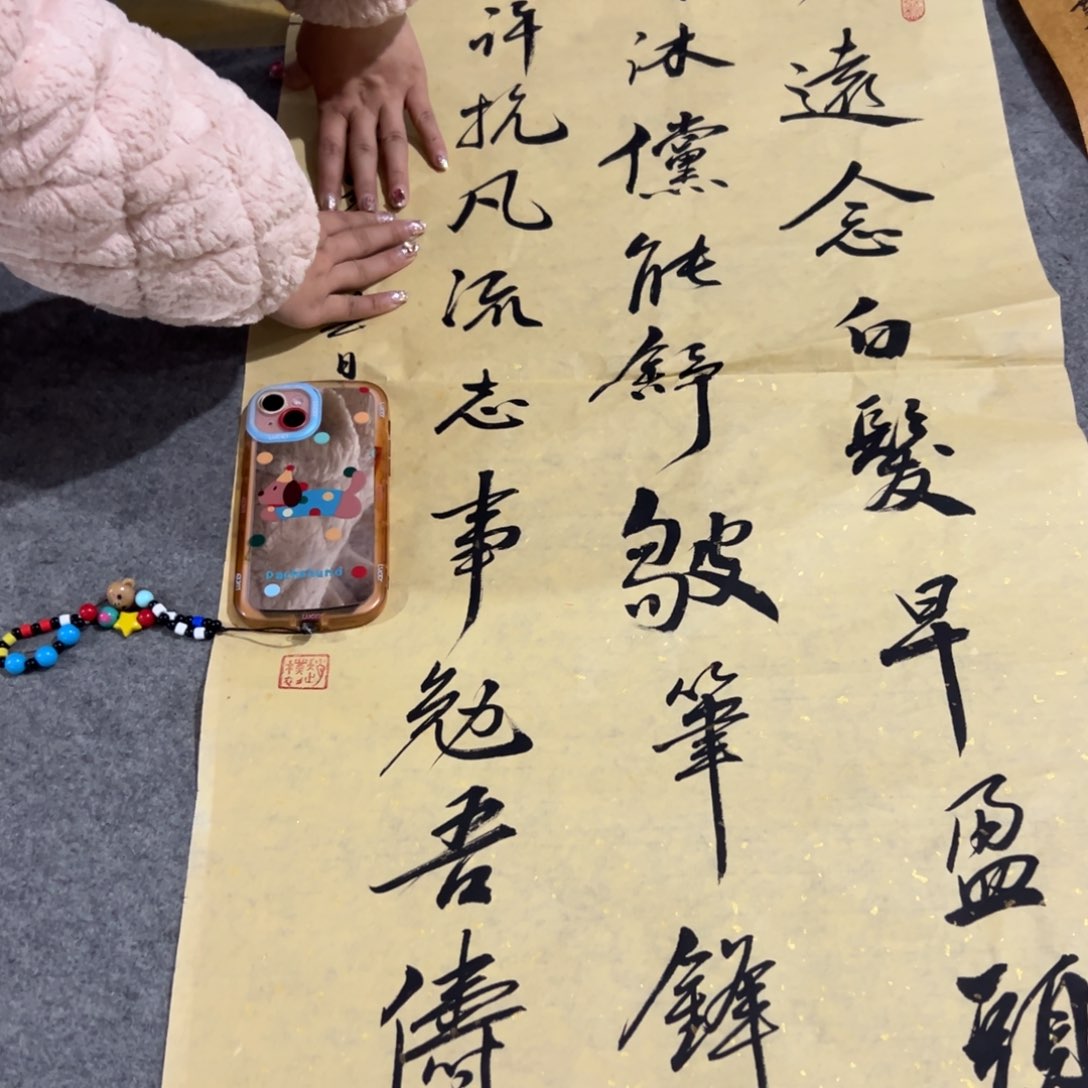 遠念白髮早盈頭
沐儻能舒皺筆鋒
抗凡流志事勉吾儔
日
Dachshund